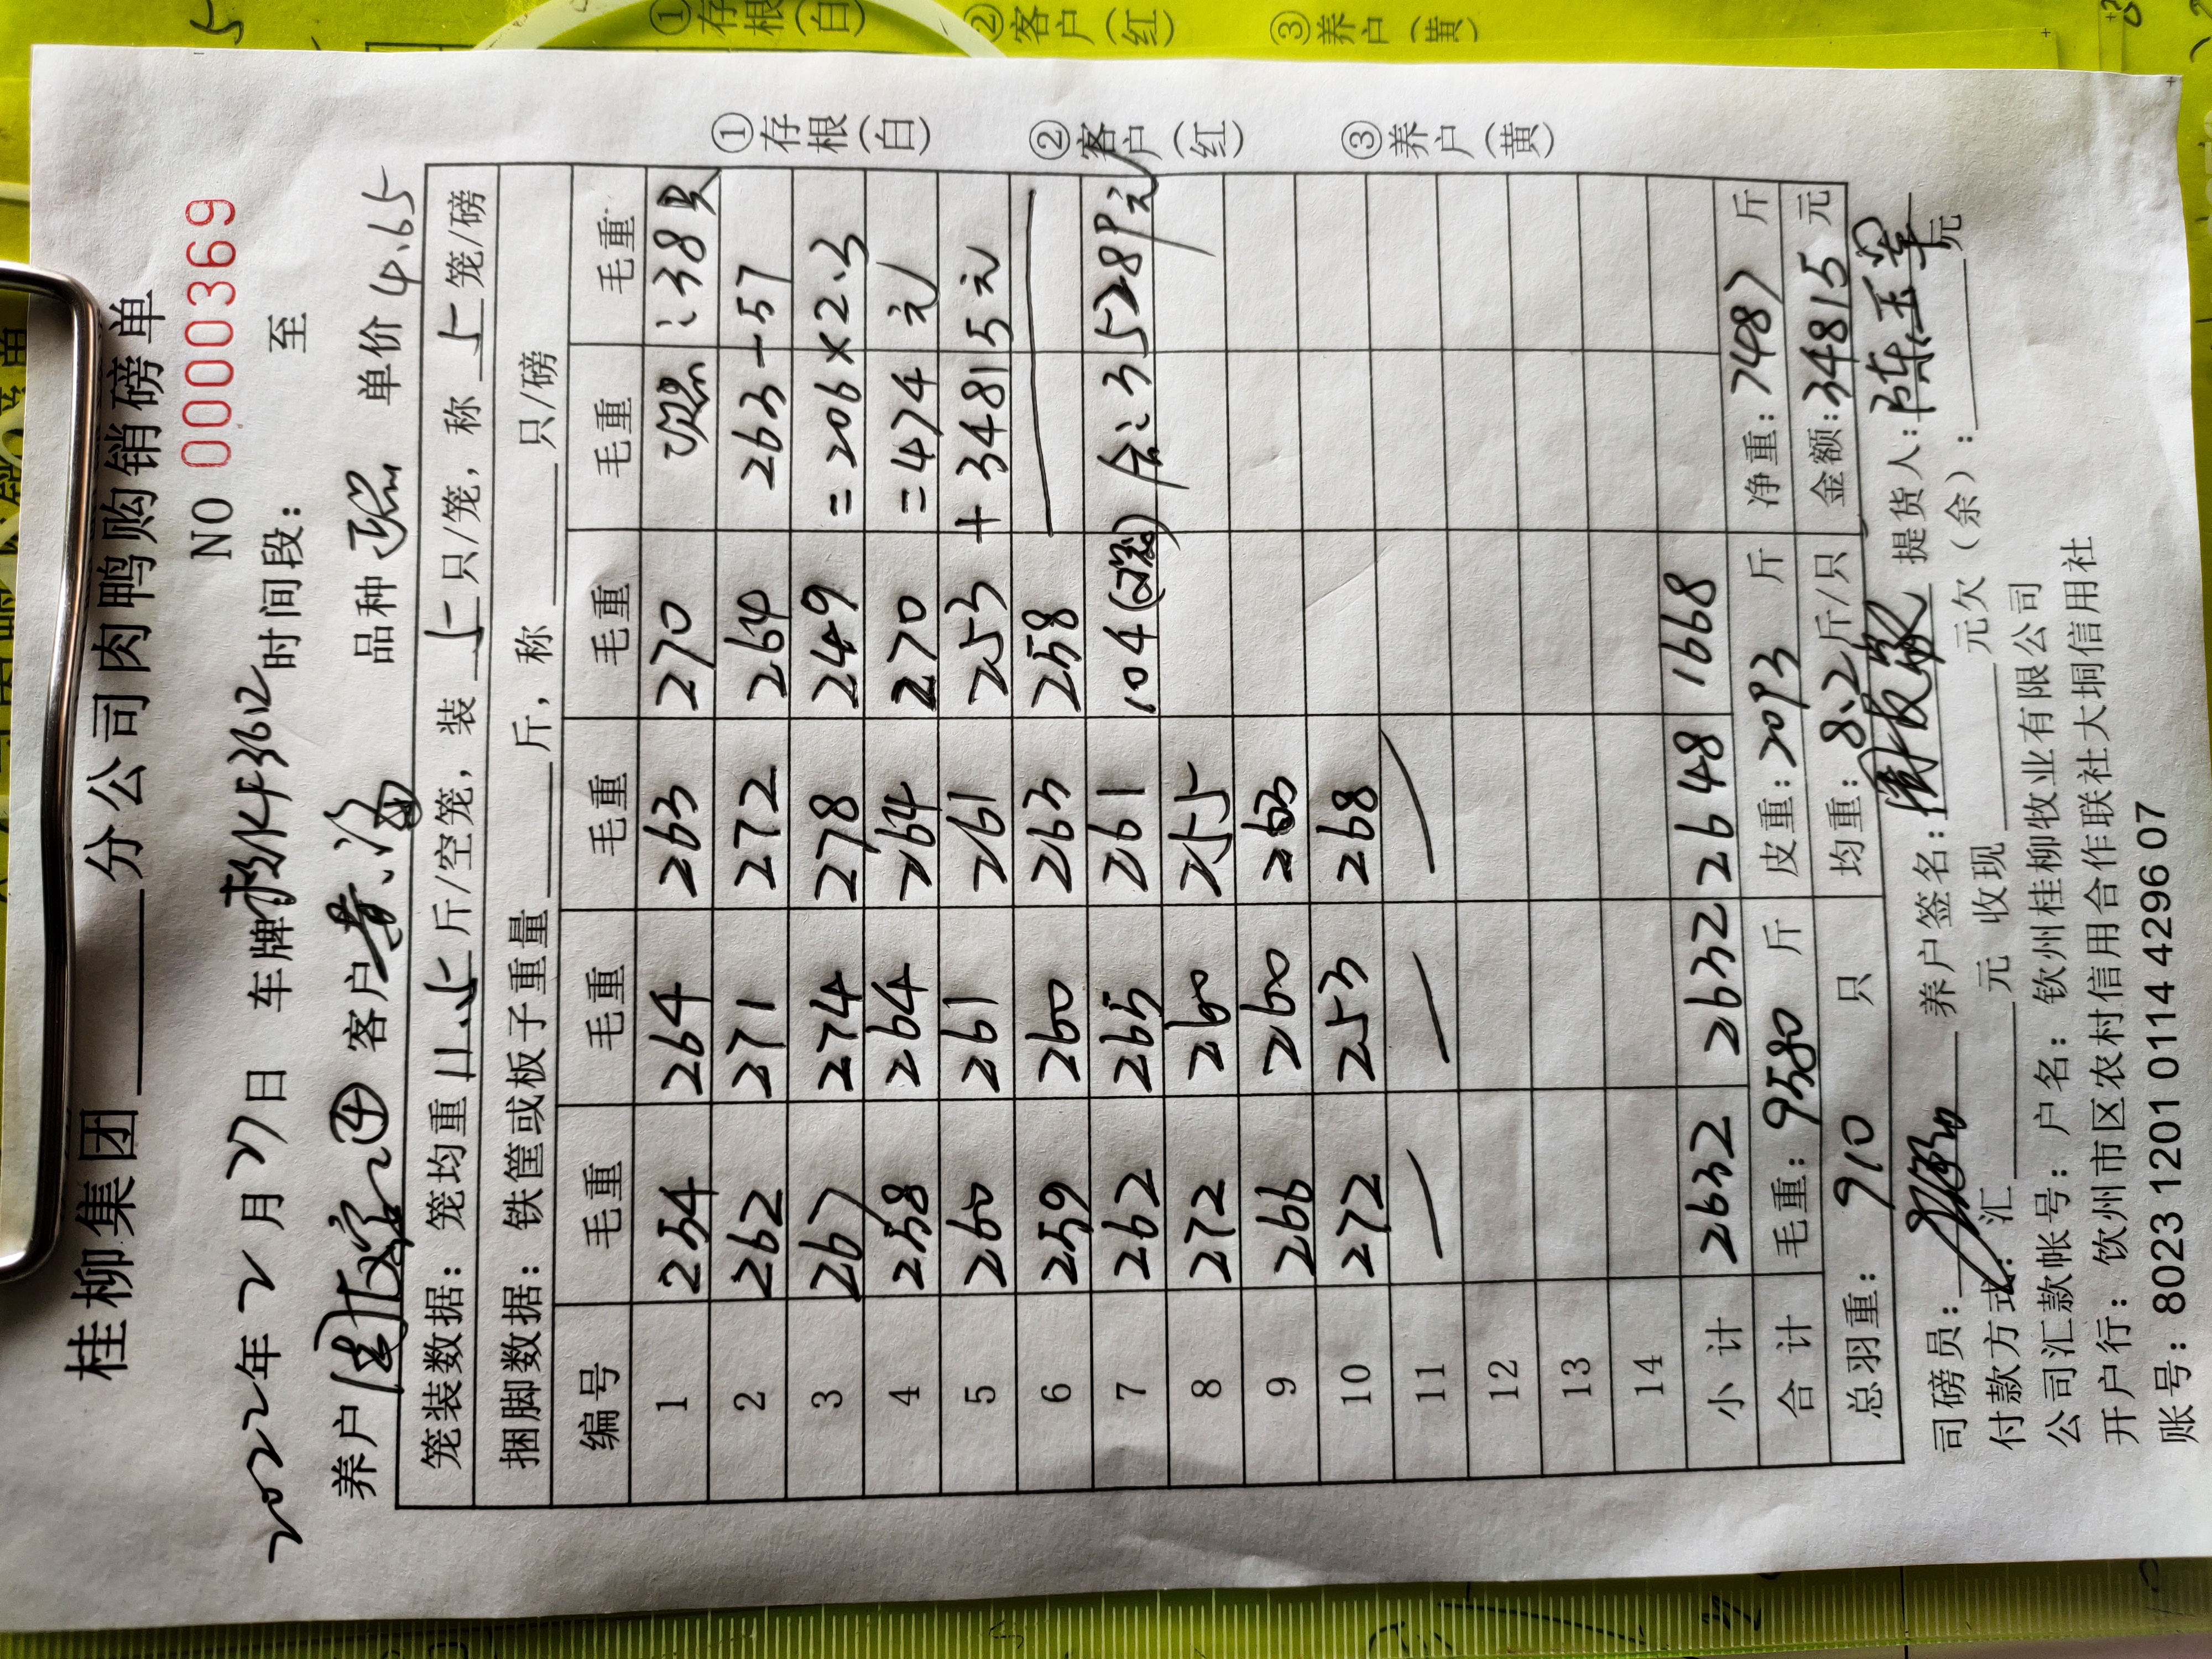 桂柳集团 分公司肉鸭购销磅单
NO 0000369
2022年2月27日 车牌: KF3612 时间段: 至
养户 客户 黄海 品种 单价 4.65
笼装数据: 笼均重 11.5 斤/空笼, 装 5 只/笼, 称 5 笼/磅
捆脚数据: 铁筐或板子重量 斤, 称 只/磅
编号 毛重 毛重 毛重 毛重 毛重 毛重
1 254 264 263 270 : 38只
2 262 271 272 264 263-57
3 267 274 278 249 =206×2.3
4 258 264 264 270 =474元
5 260 261 261 253 + 34815元
6 259 260 263 258
7 262 265 261 104 合: 35289元
8 272 260 255
9 266 260 263
10 272 253 268
11 — — —
12
13
14
小计 2632 2632 2648 1668
合计 毛重: 9580 斤 皮重: 2093 斤 净重: 7487 斤
总羽重: 910 只 均重: 8.2 斤/只 金额: 34815 元
司磅员: 养户签名: 提货人: 陈玉
付款方式: 汇 元 收现 元欠(余): 元
公司汇款帐号: 户名: 钦州桂柳牧业有限公司
开户行: 钦州市区农村信用合作联社大垌信用社
账号: 8023 1201 0114 4296 07
①存根(白) ②客户(红) ③养户(黄)
①存根(白) ②客户(红) ③养户(黄)